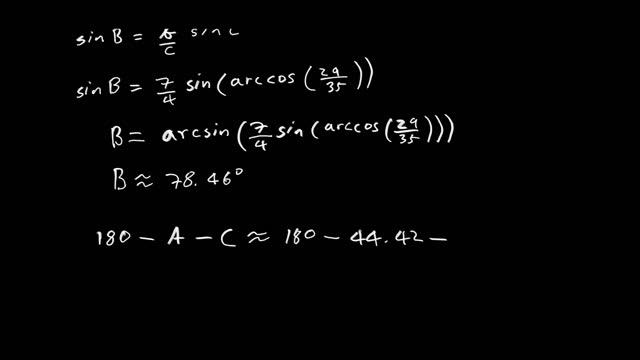 sin B = b/c sin C
sin B = 7/4 sin(arccos(29/35))
B = arcsin(7/4 sin(arccos(29/35)))
B ≈ 78.46°
180 - A - C ≈ 180 - 44.42 -